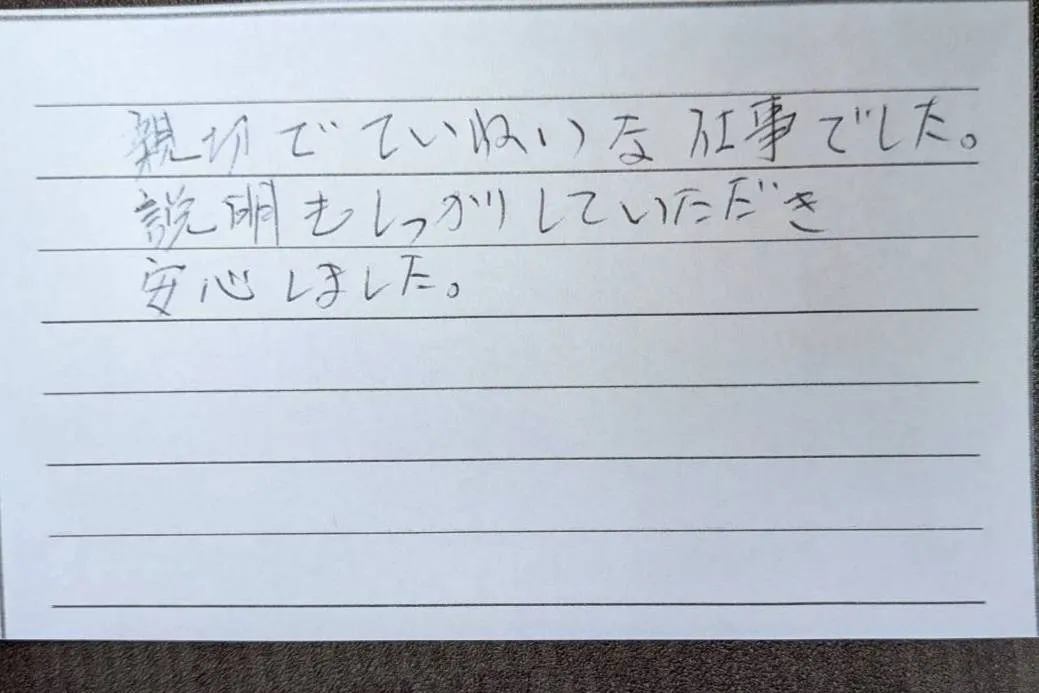 親切でていねいな仕事でした。
説明もしっかりしていただき
安心しました。